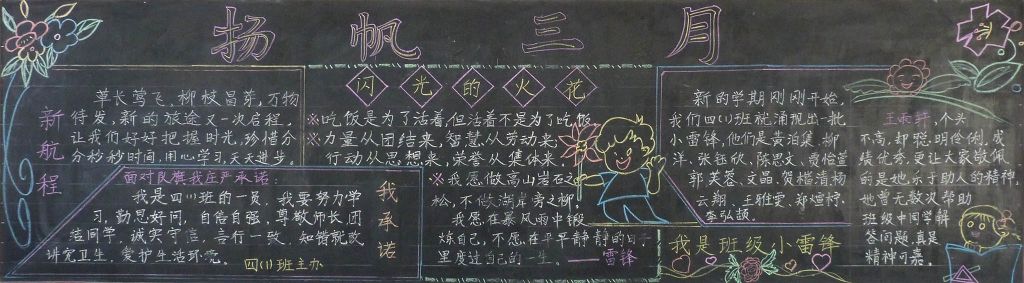 扬帆三月
新航程
草长莺飞,柳枝冒芽,万物
待发,新的旅途又一次启程,
让我们好好把握时光,珍惜分
分秒秒时间,用心学习,天天进步。
面对队旗我庄严承诺:
我承诺
我是四(1)班的一员,我要努力学
习,勤思好问,自信自强,尊敬师长,团
结同学,诚实守信,言行一致,知错就改
讲究卫生,爱护生活环境。
四(1)班主办
闪光的火花
※吃饭是为了活着,但活着不是为了吃饭。
※力量从团结来,智慧从劳动来,
行动从思想来,荣誉从集体来。
※我愿做高山岩石之
松,不做湖岸旁之柳,
我愿在暴风雨中锻
炼自己,不愿在平平静静的日子
里度过自己的一生。——雷锋
新的学期刚刚开始,
我们四(1)班就涌现出一批
小雷锋,他们是黄泊集、柳
洋、张钰欣、陈思文、费怡萱
郭芙蓉、文晶、贺楷清、杨
云翔、王雅雯、郑烜桐、
李弘颉
我是班级小雷锋
王雨轩,个头
不高,却聪明伶俐,成
绩优秀,更让大家敬佩
的是她乐于助人的精神,
她曾无数次帮助
班级中同学解
答问题,真是
精神可嘉。